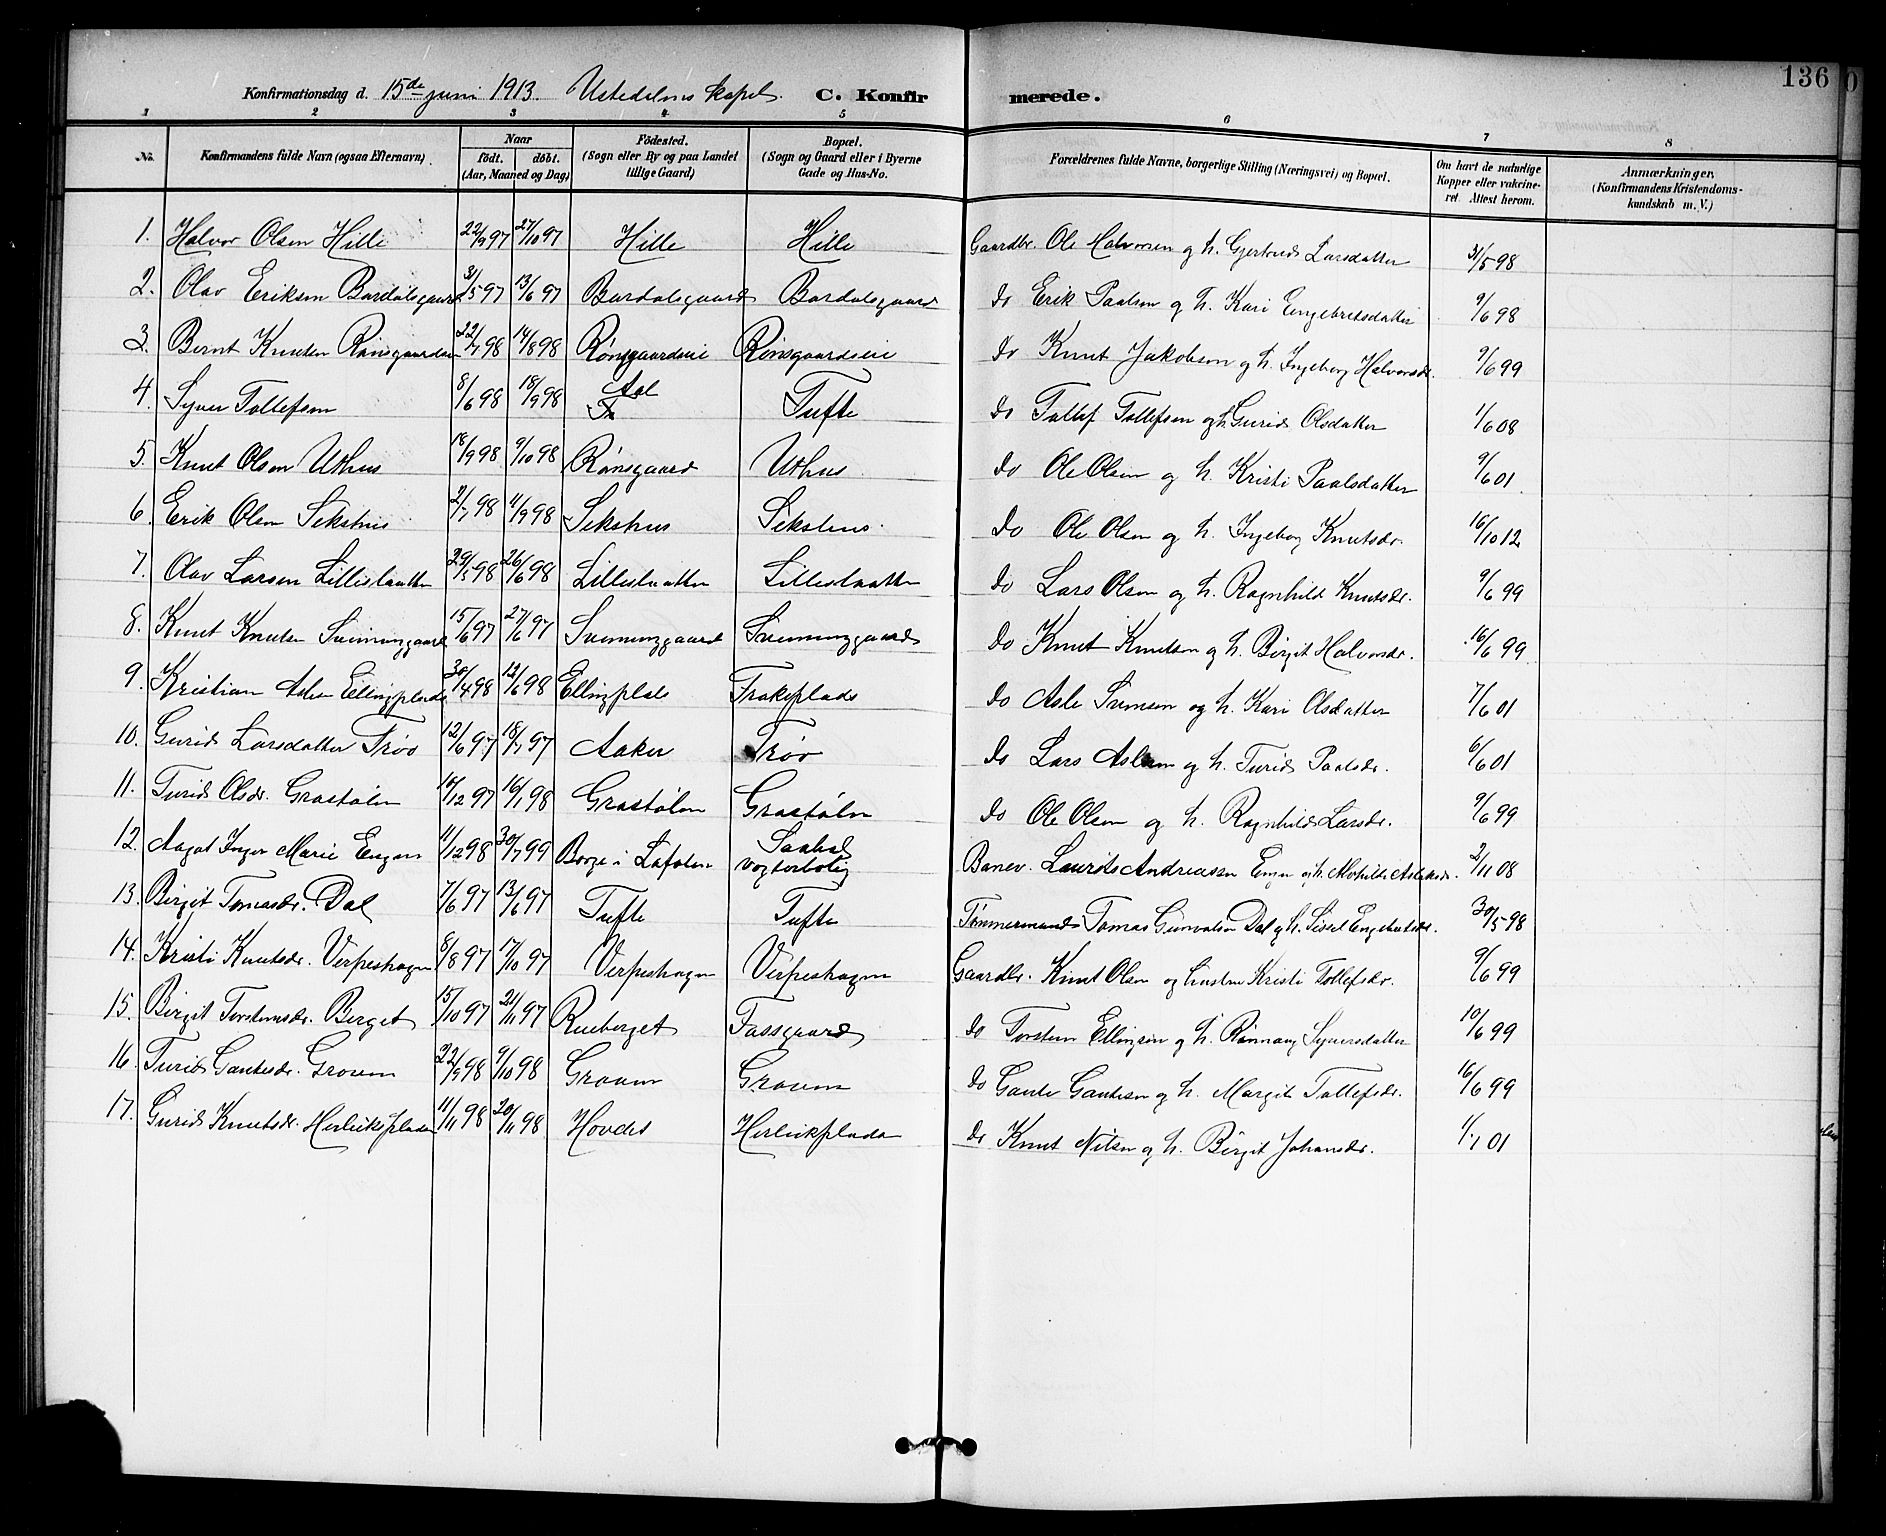 136
Konfirmationsdag d. 15de juni 1913. Ustedalens kapel. C. Konfirmerede.
1 2 3 4 5 6 7 8
No. Konfirmandens fulde Navn (ogsaa Efternavn). Naar født. døbt. (Aar, Maaned og Dag) Fødested. (Sogn eller By og paa Landet tillige Gaard) Bopæl. (Sogn og Gaard eller i Byerne Gade og Hus-No. Forældrenes fulde Navne, borgerlige Stilling (Næringsvei) og Bopæl. Om havt de naturlige Kopper eller vakcineret. Attest herom. Anmærkninger. (Konfirmandens Kristendomskundskab m. V.)
1. Halvor Olsen Hille 22/9 97 27/10 97 Hille Hille Gaardbr. Ole Halvorsen og h. Gjertrud Larsdatter 31/5 98
2. Olav Eriksen Bardalsgaard 3/5 97 13/6 97 Bardalsgaard Bardalsgaard do Erik Paalsen og h. Kari Engebretsdatter 9/6 98
3. Bernt Knutsen Rønsgaardseie 22/7 98 14/8 98 Rønsgaardseie Rønsgaardseie do Knut Jakobsen og h. Ingeborg Halvorsdr. 9/6 99
4. Syver Tollefsen 8/6 98 18/9 98 Aal Tufte do Tollef Tollefsen og h. Gurid Olsdatter 1/6 08
5. Knut Olsen Uthus 18/9 98 9/10 98 Rønsgaard Uthus do Ole Olsen og h. Kristi Paalsdatter 9/6 01
6. Erik Olsen Sekshus 2/7 98 11/9 98 Sekshus Sekshus. do Ole Olsen og h. Ingeborg Knutsdr. 16/10 12
7. Olav Larsen Lillislaatten 29/5 98 26/6 98 Lillislaatten Lillislaatten do Lars Olsen og h. Ragnhild Knutsdr. 9/6 99
8. Knut Knutsen Sveinunggaard 15/6 97 27/6 97 Sveinunggaard Sveinunggaard do Knut Knutsen og h. Birgit Halvorsdr. 16/6 99
9. Kristian Aslesen Ellingplads 30/4 98 12/6 98 Ellingplads Trokeplads do Asle Svensen og h. Kari Olsdatter 7/6 01
10. Gurid Larsdatter Trøo 12/6 97 18/7 97 Aaker Trøo do Lars Aslesen og h. Turid Paalsdr. 6/6 01
11. Turid Olsdr. Grostølen 10/12 97 16/1 98 Grostølen Grostølen do Ole Olsen og h. Ragnhild Larsdr. 9/6 99
12. Aagot Inger Marie Engen 11/12 98 30/7 99 Borge i Lofoten vogterbolig Banev. Laurits Andreassen Engen og h. 2/11 08
13. Birgit Tomasdr. Dal 7/6 97 13/6 97 Tufte Tufte Tømmermand Tomas Gunvalsen Dal og h. Sissel Engebretsdr. 30/5 98
14. Kristi Knutsdr. Verpeshagen 8/8 97 17/10 97 Verpeshagen Verpeshagen Gaardbr. Knut Olsen og hustru Kristi Tollefsdr. 9/6 99
15. Birgit Torstensdr. Berget 15/10 97 21/11 97 Rueberget Fassgaard do Torsten Ellingsen og h. Rønnaug Syversdatter 10/6 99
16. Turid Gautesdr. Groven 22/9 98 9/10 98 Groven Groven do Gaute Gautesen og h. Margit Tollefsdr. 16/6 99
17. Gurid Knutsdr. Herleiksplads 11/11 98 20/11 98 Hovdet Herleikplads do Knut Nilsen og h. Birgit Johansdr. 1/1 01